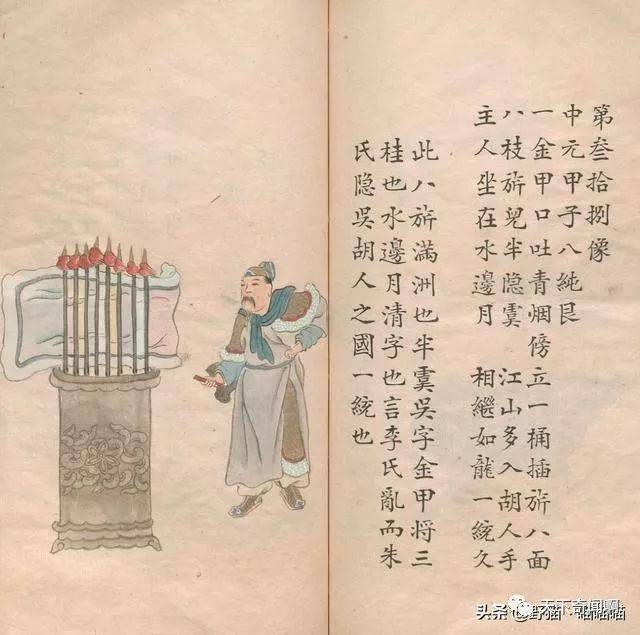 第叁拾捌像
中元甲子八純艮
一金甲口吐青烟傍立一桶插旂八面
八枝旂兒半隐虞　江山多入胡人手
主人坐在水邊月　相繼如龍一統久
此八旂滿洲也半虞吳字金甲将三
桂也水邊月清字也言李氏亂而朱
氏隐吳胡人之國一統也
头条